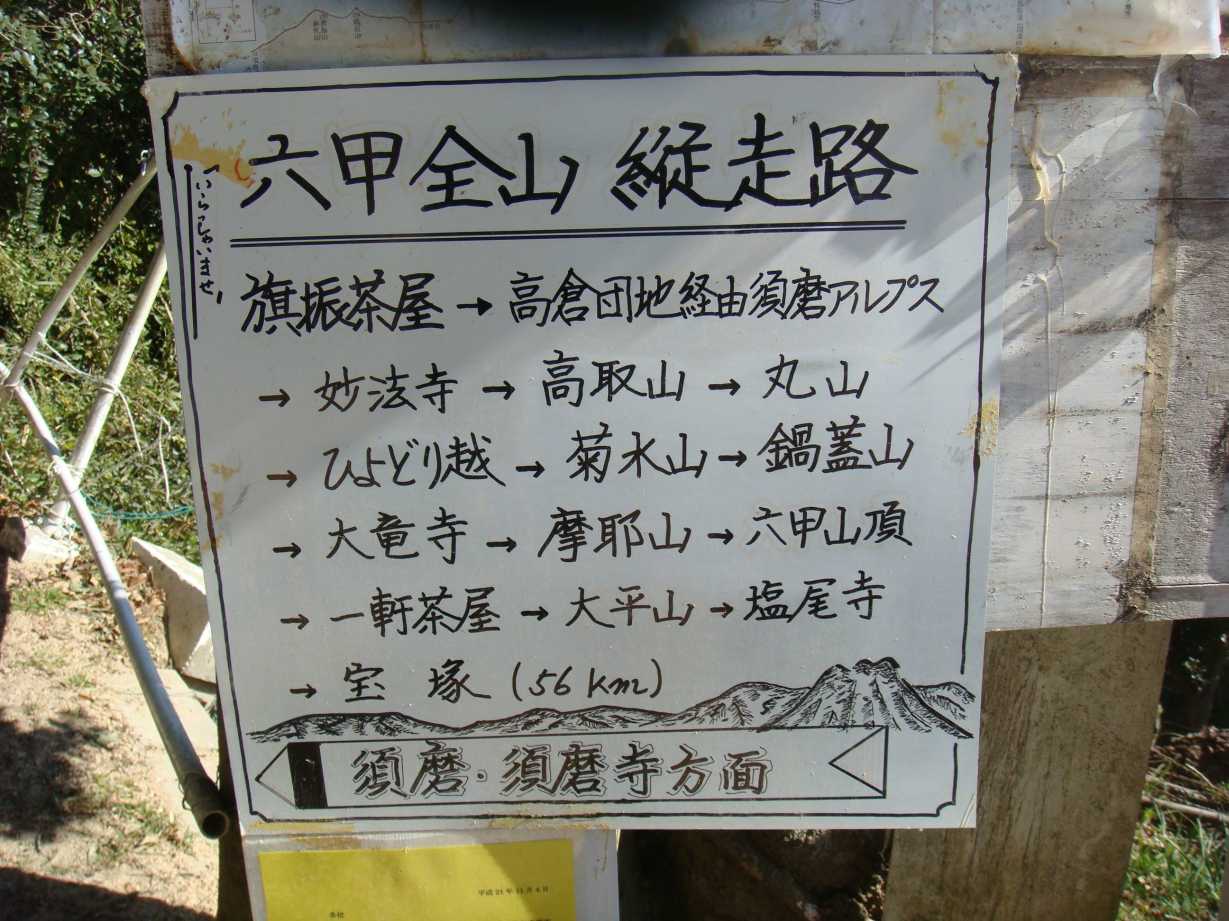 六甲全山 縦走路
「いらっしゃいませ」
旗振茶屋→高倉団地経由須磨アルプス
→妙法寺→高取山→丸山
→ひよどり越→菊水山→鍋蓋山
→大竜寺→摩耶山→六甲山頂
→一軒茶屋→大平山→塩尾寺
→宝塚(56km)
須磨・須磨寺方面
平成21年11月4日
各位